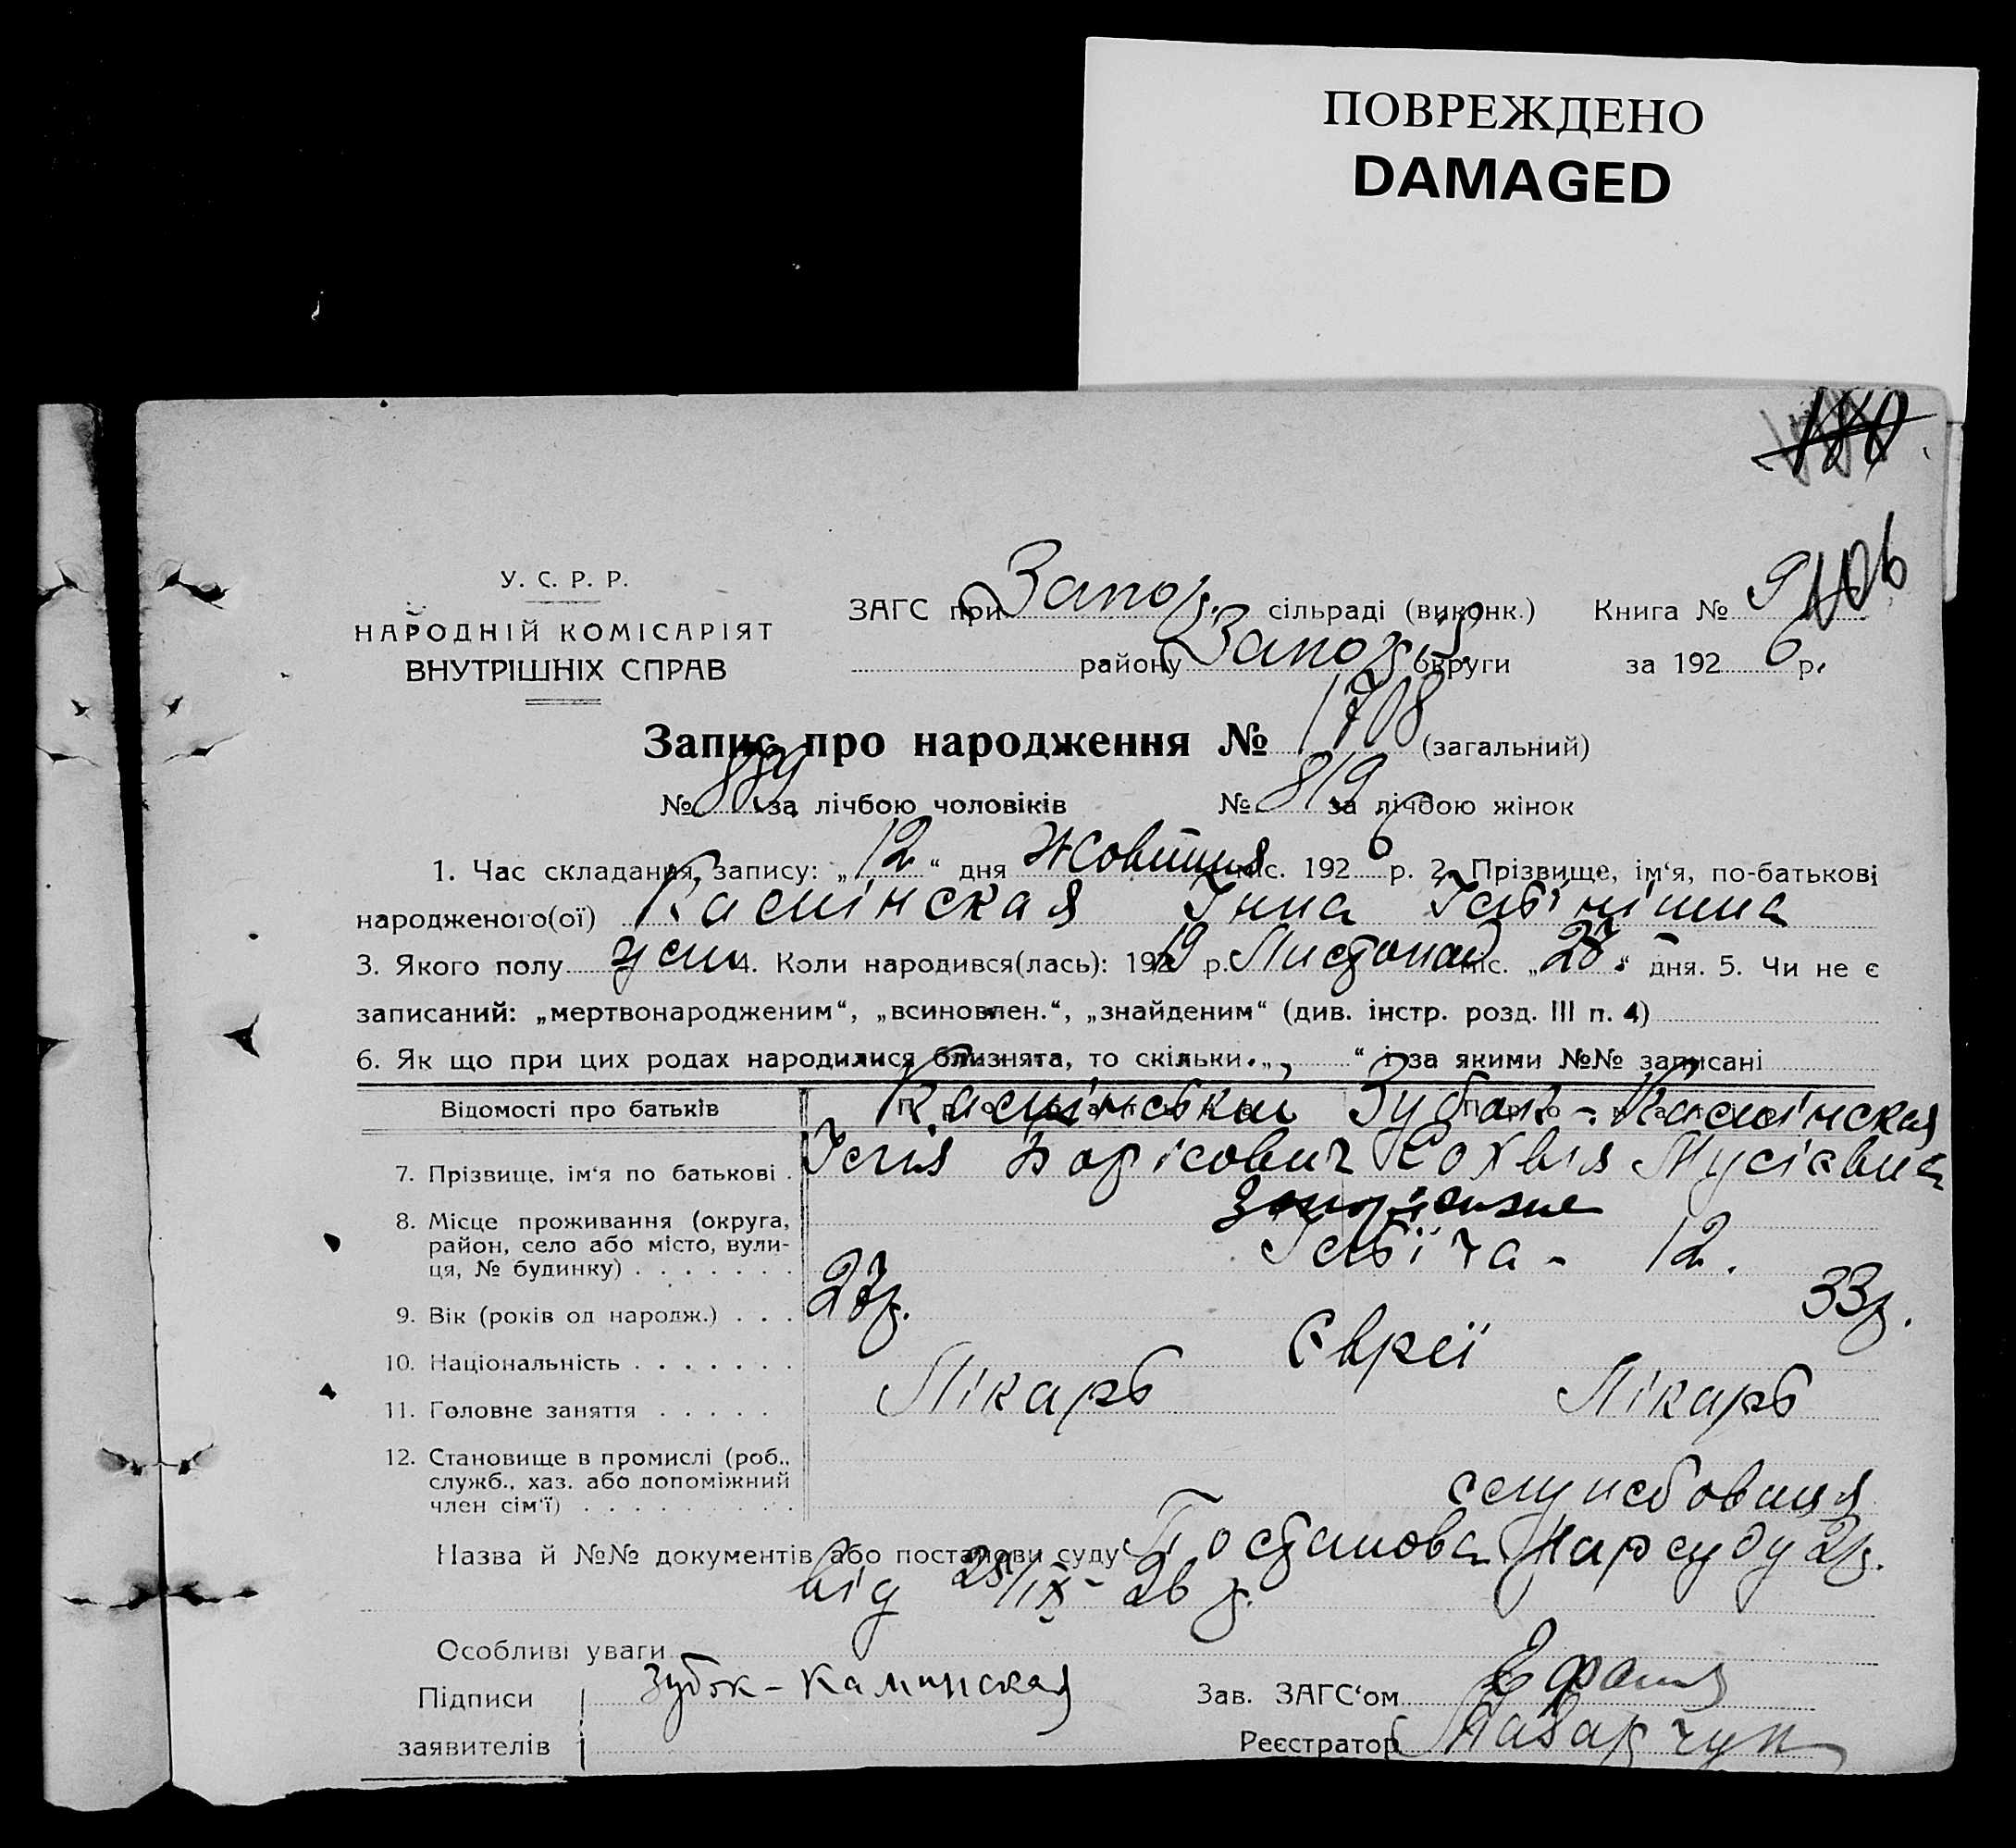 ПОВРЕЖДЕНО
DAMAGED
У. С. Р. Р.
НАРОДНІЙ КОМІСАРІЯТ
ВНУТРІШНІХ СПРАВ
ЗАГС при Запор. сільраді (виконк.) Книга № 9
району Запоріз. округи за 192 6 р.
Запис про народження № 1708 (загальний)
№ 889 за лічбою чоловіків № 819 за лічбою жінок
1. Час складання запису: „ 12 “ дня Жовтня міс. 192 6 р. 2. Прізвище, ім‘я, по-батькові
народженого(ої) Камінская Інна
3. Якого полу жін 4. Коли народився(лась): 19 19 р. Листопад міс. „ 27 “ дня. 5. Чи не є
записаний: „мертвонародженим“, „всиновлен.“, „знайденим“ (див. інстр. розд. III п. 4)
6. Як що при цих родах народилися близнята, то скільки „ “ і за якими №№ записані
Відомості про батьків Камінський Зубок-Камінская
7. Прізвище, ім‘я по батькові Борісович Мусієвна
8. Місце проживання (округа,
район, село або місто, вули-
ця, № будинку) Ілліча - 12.
9. Вік (років од народж.) 27р. 33р.
10. Національність Євреї
11. Головне заняття Лікарь Лікарь
12. Становище в промислі (роб.,
служб., хаз. або допоміжний
член сім‘ї) службовця
Назва й №№ документів або постанови суду Постанова Нарсуду 2р.
від 28/IX-26 р.
Особливі уваги
Підписи Зубок-Каминская Зав. ЗАГС‘ом
заявителів Реєстратор